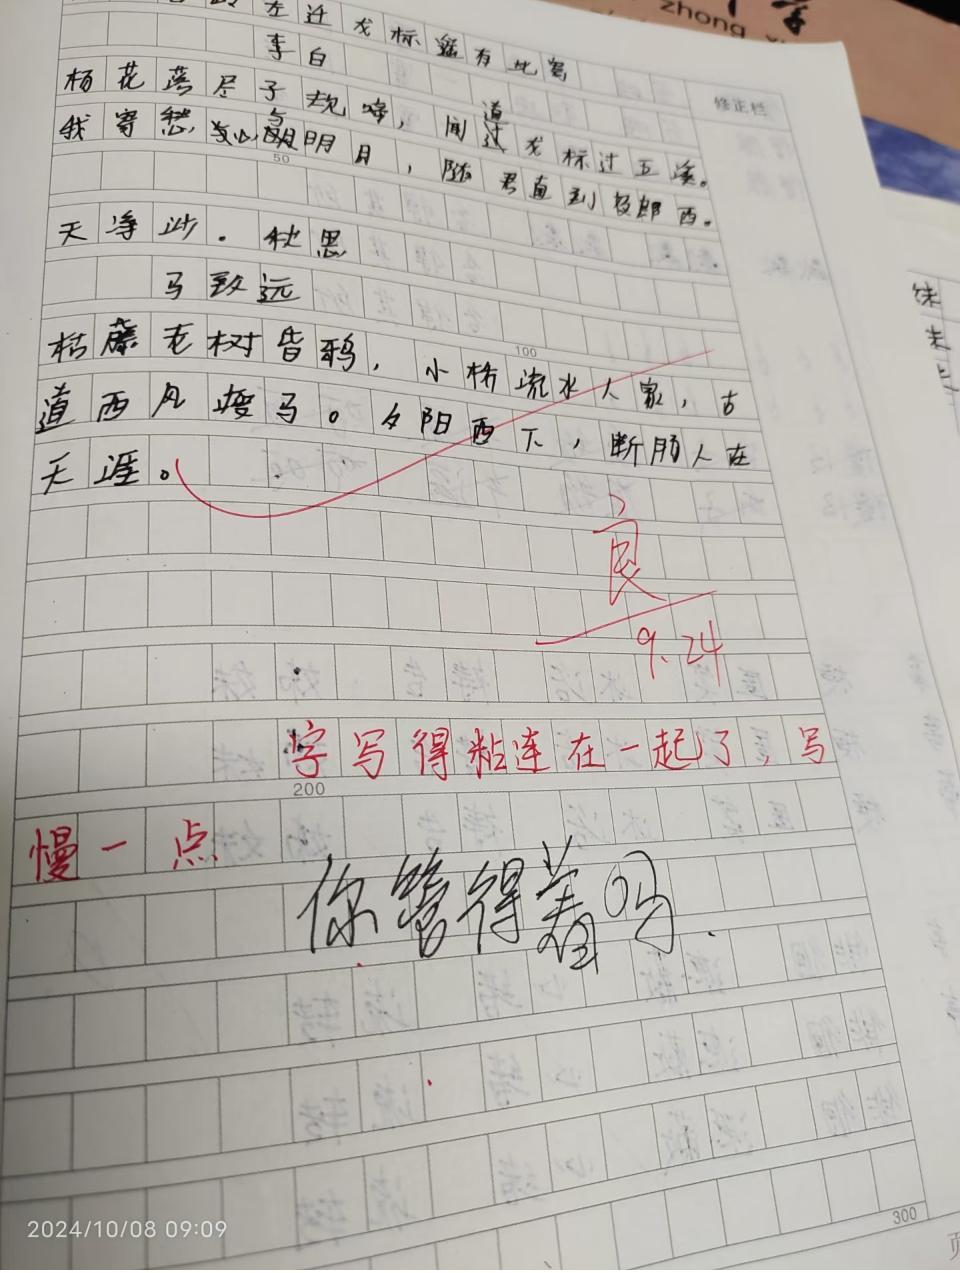 zhong
左迁龙标遥有此寄
李白
修正栏
杨花落尽子规啼，闻道龙标过五溪。
我寄愁与明月，随君直到夜郎西。
50
天净沙．秋思
马致远
枯藤老树昏鸦，小桥流水人家，古
100
道西风瘦马。夕阳西下，断肠人在
天涯。
良
9.24
字写得粘连在一起了，写
200
慢一点
你管得着吗．
300
2024/10/08 09:09